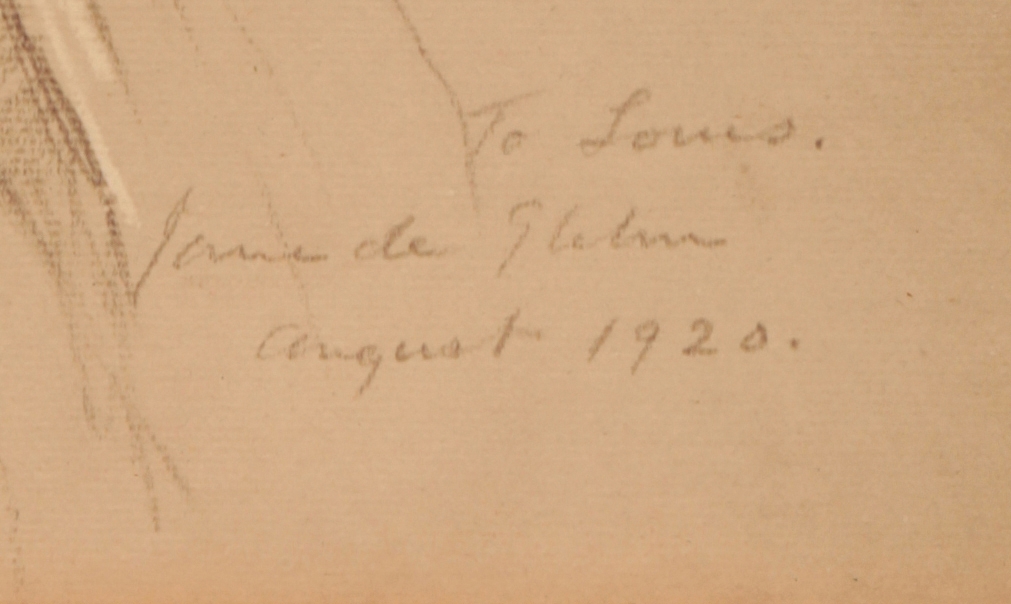 To Louis.
Jane de Glehn
august 1920.